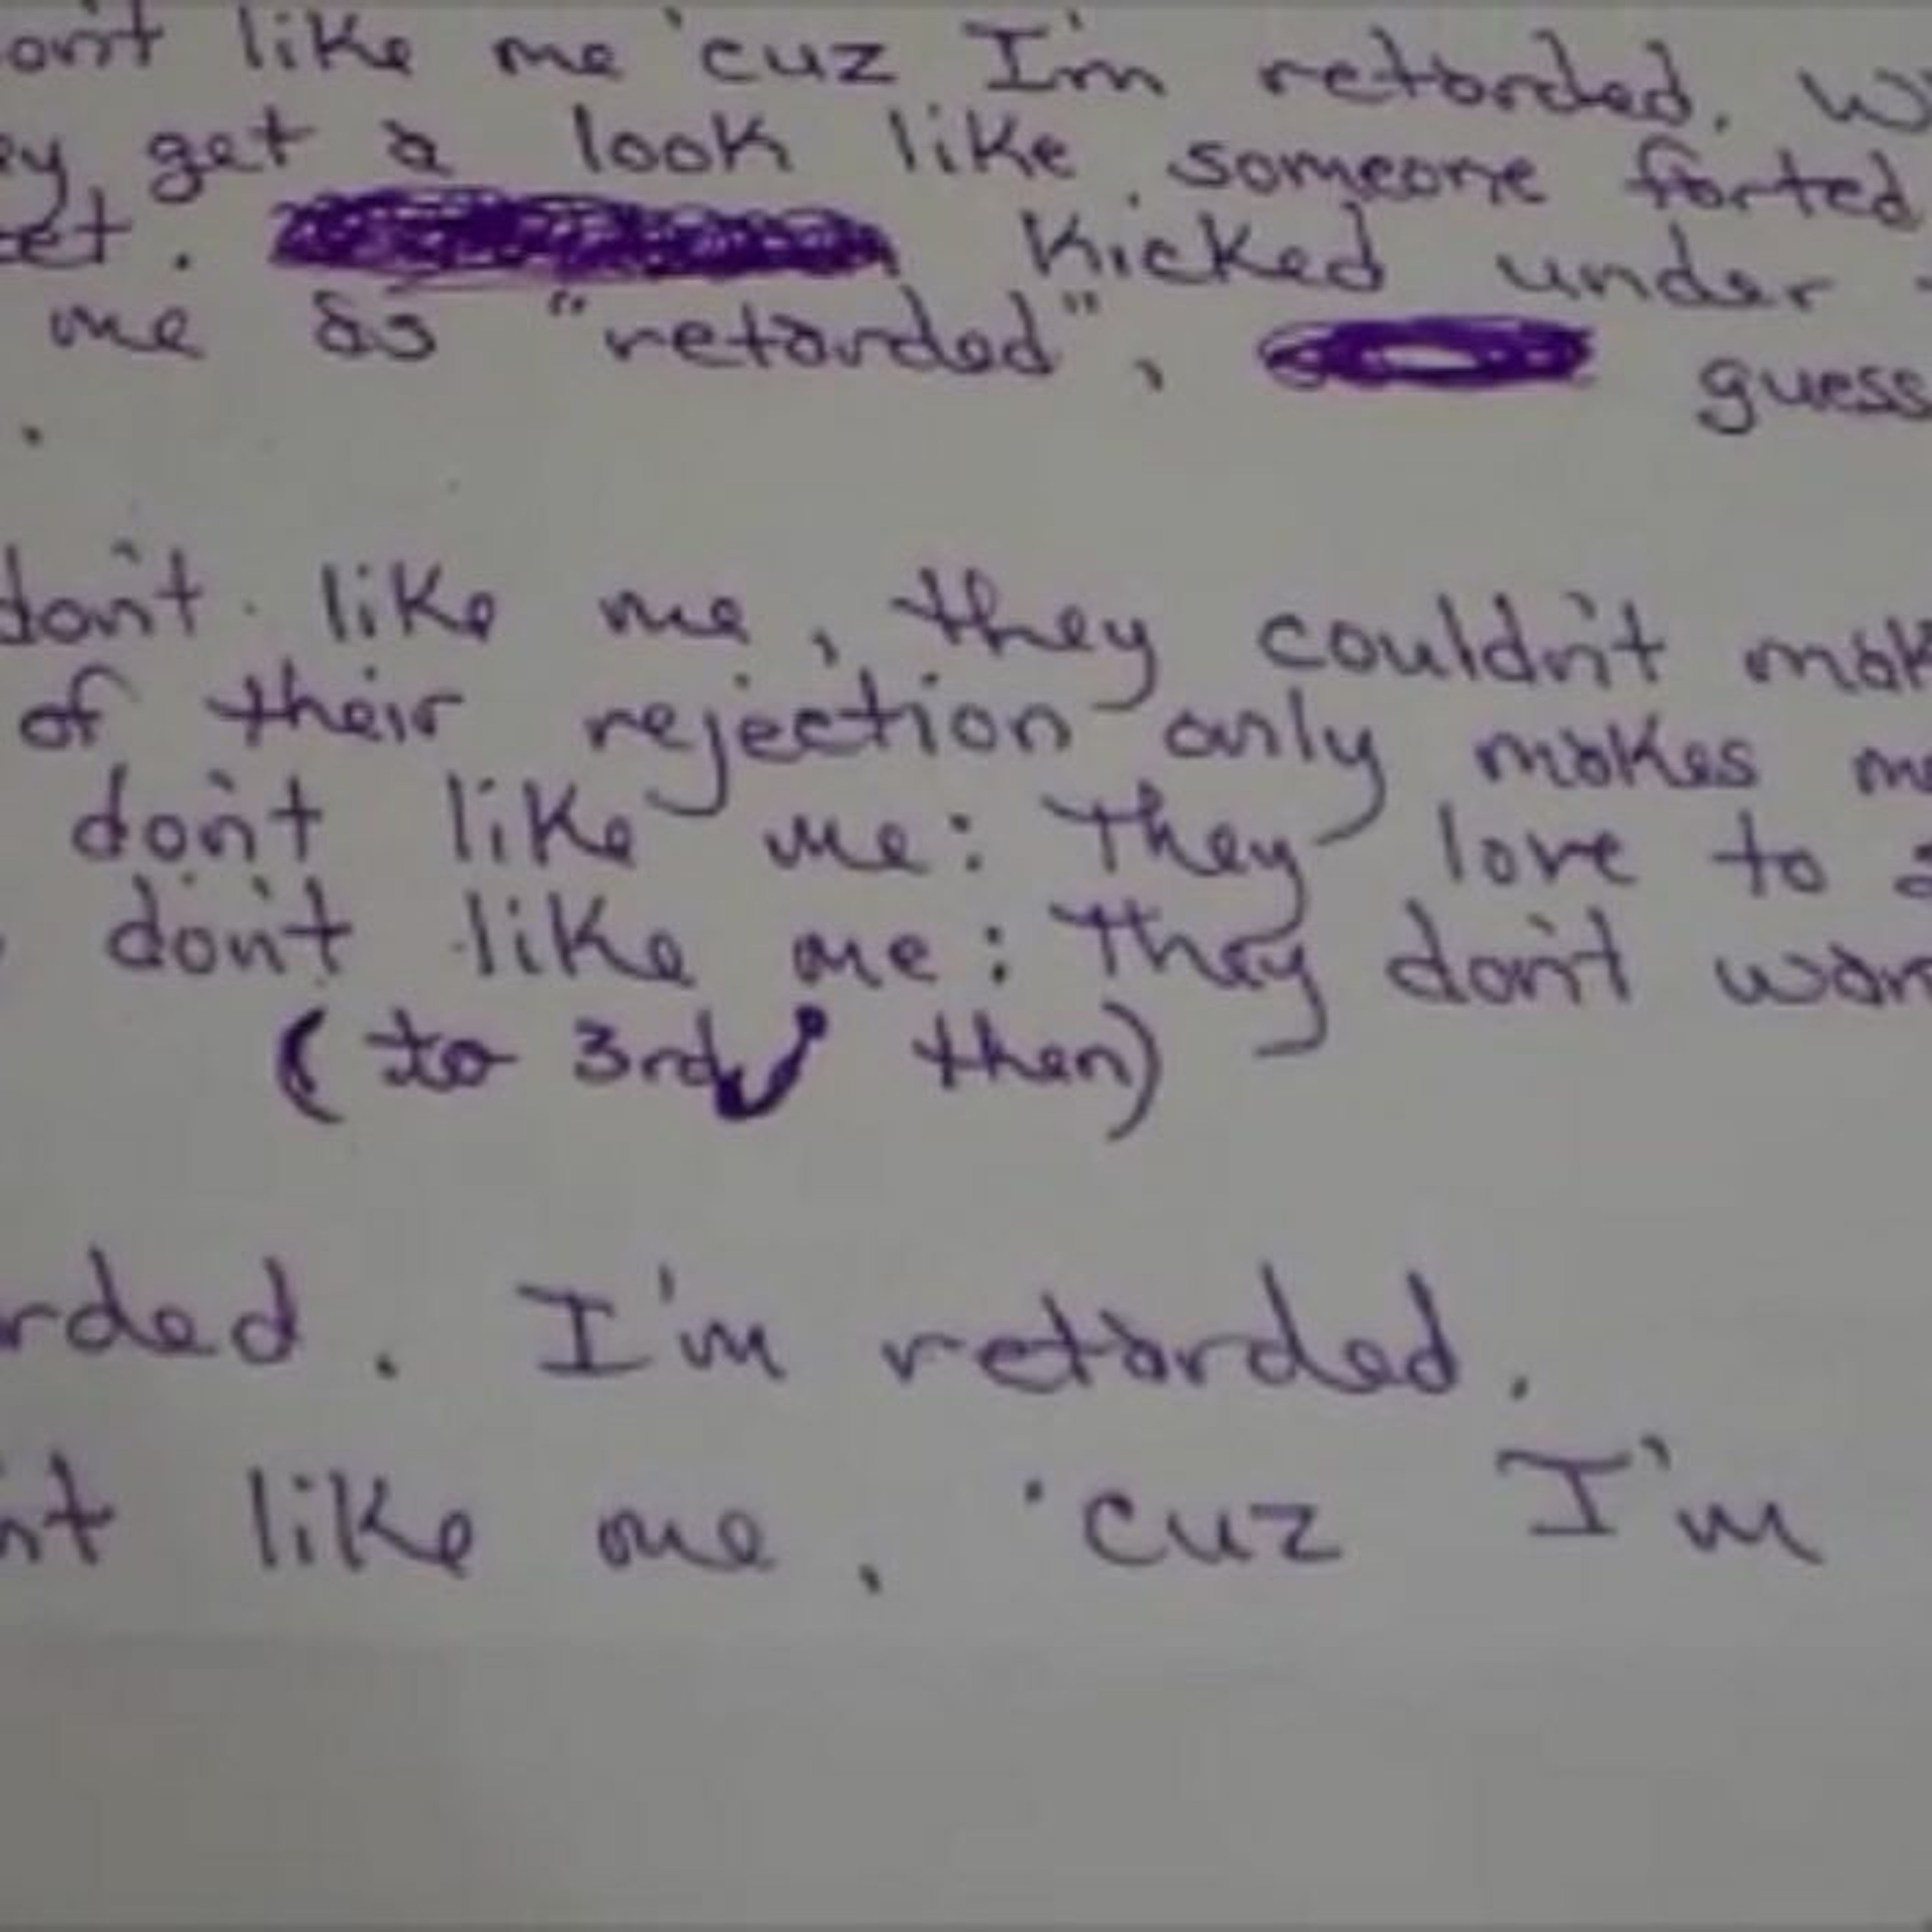 on't like me 'cuz I'm retarded. W
ey get a look like someone farted
et. Kicked under
me as "retarded", guess
.
don't like me, they couldn't mak
of their rejection only makes me
don't like me: They love to a
don't like me: They don't wan
(to 3rd then)
rded. I'm retarded.
n't like me, 'cuz I'm